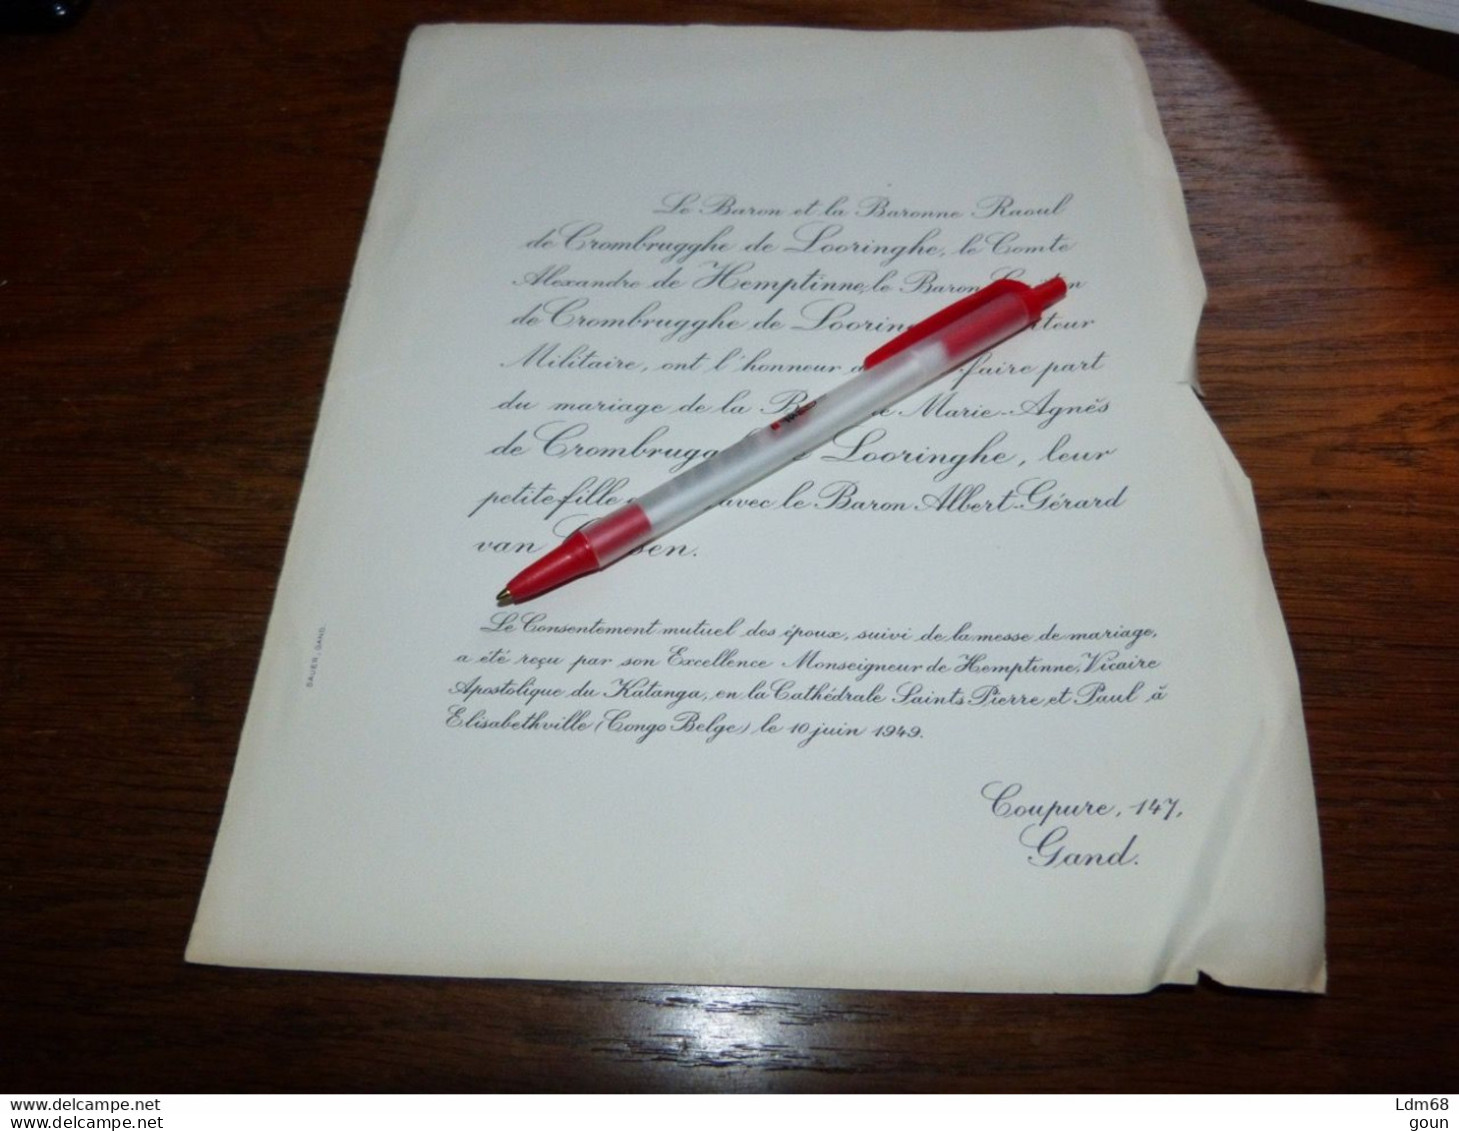 Le Baron et la Baronne Raoul
de Crombrugghe de Looringhe, le Comte
Alexandre de Hemptinne, le Baron
de Crombrugghe de
Militaire, ont l'honneur faire part
du mariage de la Marie-Agnès
de Looringhe, leur
petite-fille avec le Baron Albert-Gérard
van
Le Consentement mutuel des époux, suivi de la messe de mariage,
a été reçu par son Excellence Monseigneur de Hemptinne, Vicaire
Apostolique du Katanga, en la Cathédrale Saints Pierre et Paul à
Elisabethville (Congo Belge) le 10 juin 1949.
Coupure, 147,
Gand.
BAUER, GAND.
www.delcampe.net
www.delcampe.net
Ldm68
goun